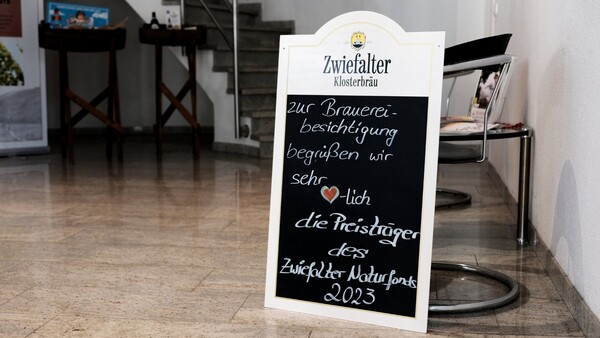 Zwiefalter
Klosterbräu
zur Brauerei-
besichtigung
begrüßen wir
sehr
❤-lich
die Preisträger
des
Zwiefalter Naturfonds
2023